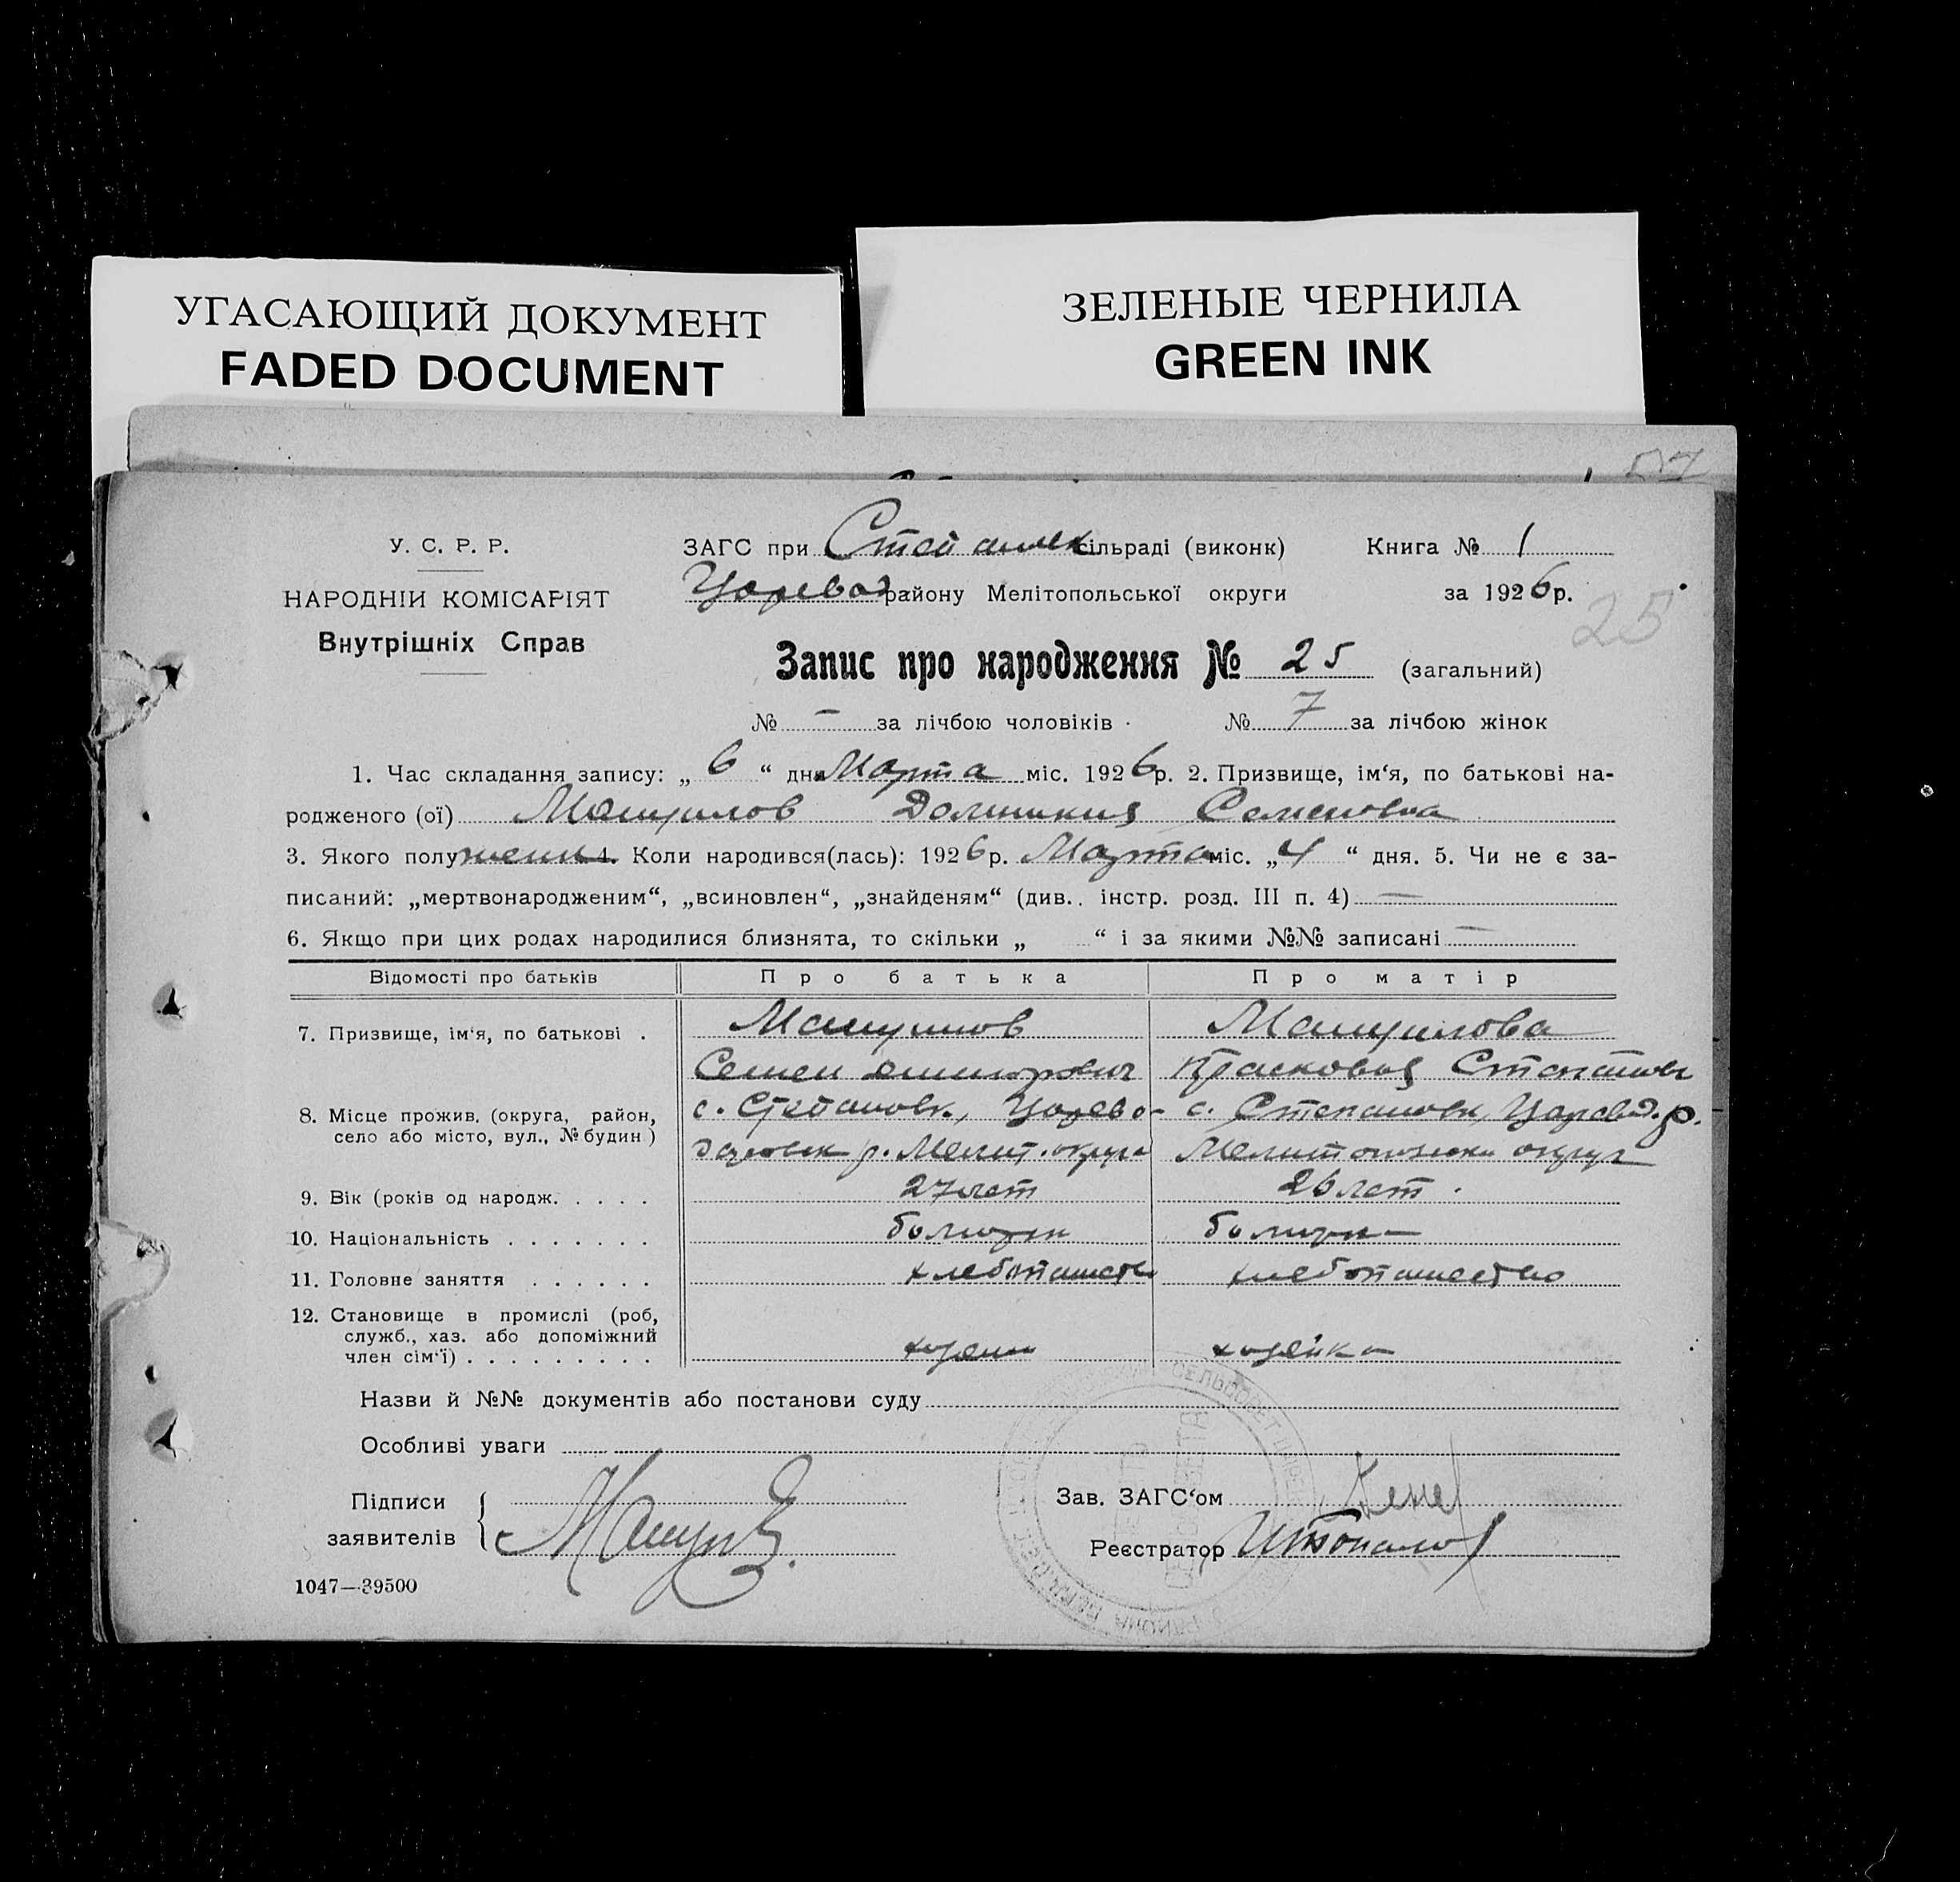 УГАСАЮЩИЙ ДОКУМЕНТ
FADED DOCUMENT
ЗЕЛЕНЫЕ ЧЕРНИЛА
GREEN INK
57
У. С. Р. Р.
НАРОДНІЙ КОМІСАРІЯТ
Внутрішніх Справ
ЗАГС при сільраді (виконк) Книга № 1
району Мелітопольської округи за 1926 р.
25
Запис про народження № 25 (загальний)
№ — за лічбою чоловіків № 7 за лічбою жінок
1. Час складання запису: „ 6 “ дня Марта міс. 1926 р. 2. Призвище, ім‘я, по батькові на-
родженого (ої) Семеновна
3. Якого полу 4. Коли народився(лась): 1926 р. Марта міс. „4 “ дня. 5. Чи не є за-
писаний: „мертвонародженим“, „всиновлен“, „знайденям“ (див. інстр. розд. III п. 4) —
6. Якщо при цих родах народилися близнята, то скільки „ “ і за якими №№ записані —
Відомості про батьків Про батька Про матір
7. Призвище, ім‘я, по батькові .
Семен Прасковия
8. Місце прожив. (округа, район,
село або місто, вул., № будин)
с. Степановк., Царево- с. Степановк, Царевод. р.
р. Мелит. округа округа
9. Вік (років од народж. . . . . 27 лет 26 лет .
10. Національність . . . . . . .
11. Головне заняття . . . . . . хлебопашество
12. Становище в промислі (роб,
служб., хаз. або допоміжний
член сім‘ї) . . . . . . . . . хозяин хозяйка
Назви й №№ документів або постанови суду
Особливі уваги
Підписи
заявителів
Зав. ЗАГС‘ом
Реєстратор
1047—39500